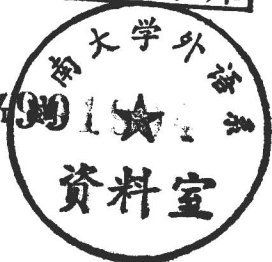 南大学外语系
资料室